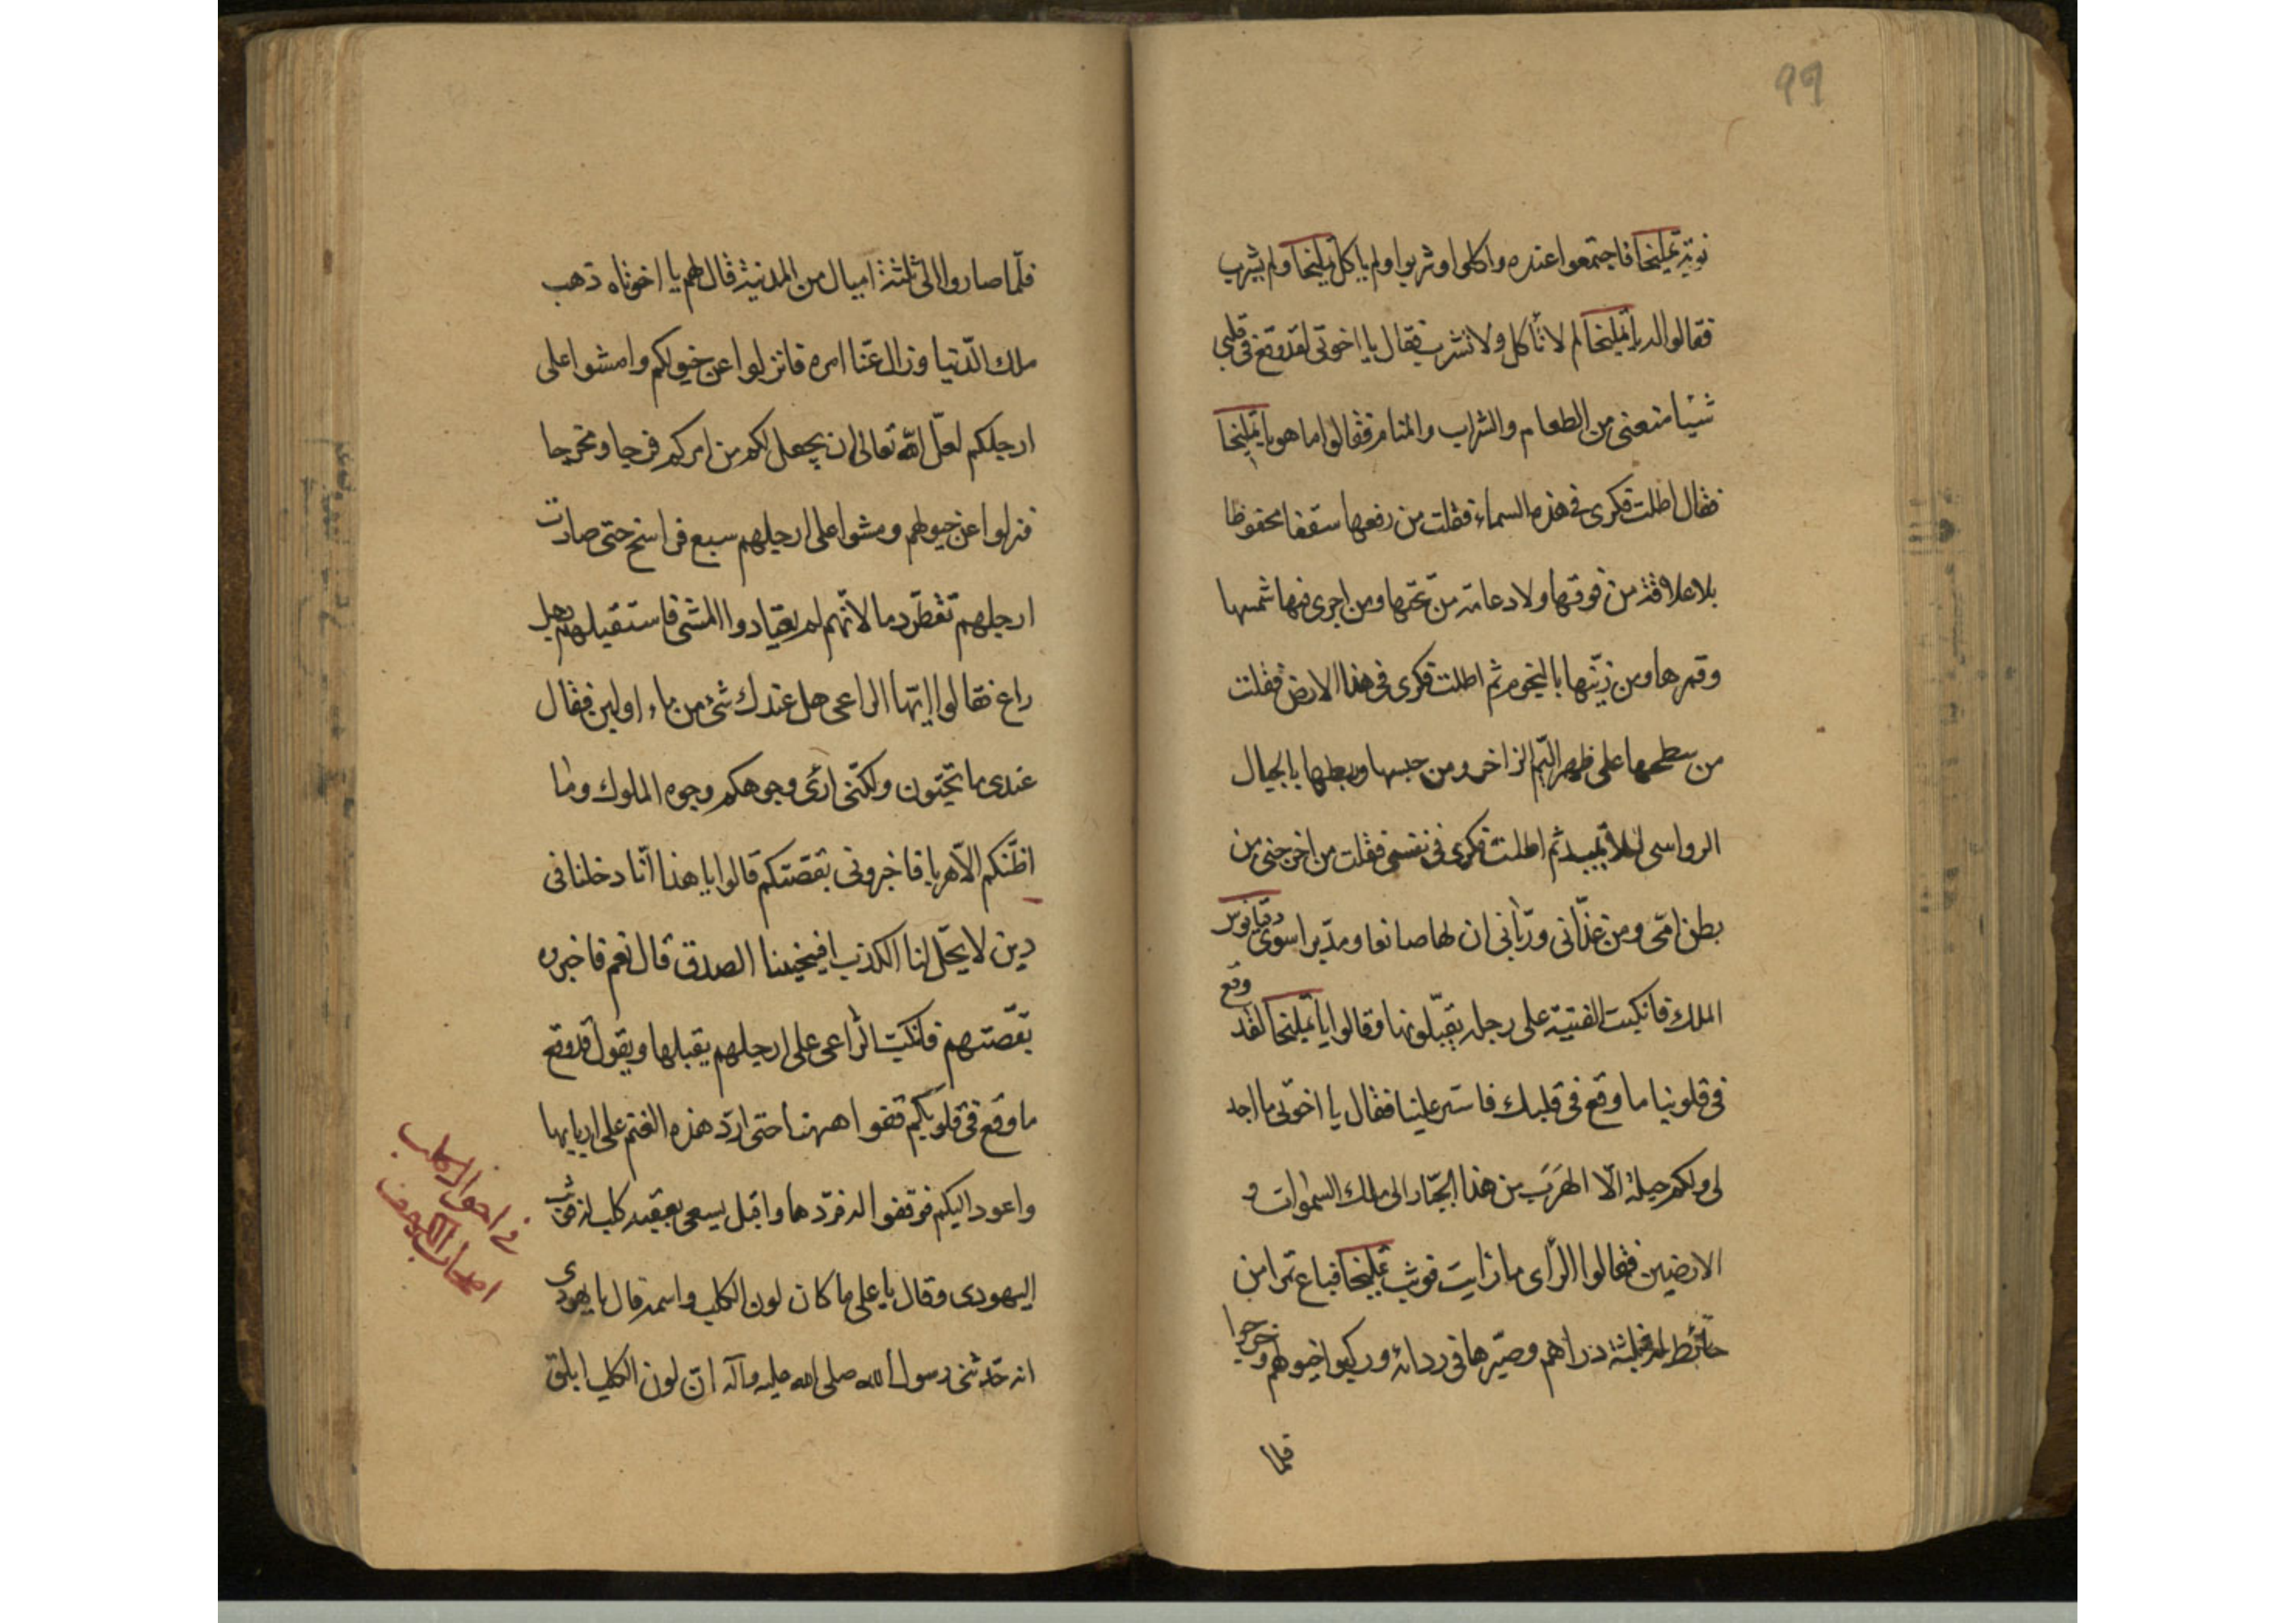 99
نوبة تمليخا فاجتمعوا عنده واكلوا وشربوا ولم ياكل تمليخا ولم يشرب
فقالوا له يا تمليخا لم لا تأكل ولا تشرب فقال يا اخوتى لقد وقع فى قلبى
شيئا منعنى من الطعام والشراب والمنام فقالوا ما هو يا تمليخا
فقال اطلت فكرى فى هذه السماء فقلت من رفعها سقفا محفوظا
بلا علاقة من فوقها ولا دعامة من تحتها ومن اجرى فيها شمسها
وقمرها ومن زيّنها بالنجوم ثم اطلت فكرى فى هذا الارض فقلت
من سطحها على ظهر اليّم الزاخر ومن حبسها وربطها بالجبال
الرواسى لئلا تميد ثم اطلت فكرى فى نفسى فقلت من اخرجنى من
بطن امّى ومن غذّانى وربّانى ان لها صانعا ومدبّرا سوى دقيانوس
الملك فانكبت الفتية على رجله يقبّلونها وقالوا يا تمليخا لقد وقع
فى قلوبنا ما وقع فى قلبك فاشر علينا فقال يا اخوتى ما اجد
لى ولكم حيلة الّا الهَرَبَ من هذا الجبّار الى ملك السموات و
الارضين فقالوا الرّأى ما رأيت فوثب تمليخا فباع تمرا من
حائط له بثلثة دراهم وصيّرها فى ردائه وركبوا خيولهم وخرجوا
فلما
فلّما صاروا الى ثلثة اميال من المدينة قال لهم يا اخوتاه ذهب
ملك الدّنيا وزال عنّا امره فانزلوا عن خيولكم وامشوا على
ارجلكم لعلّ الله تعالى ان يجعل لكم من امركم فرجا ومخرجا
فنزلوا عن خيولهم ومشوا على ارجلهم سبع فراسخ حتى صارت
ارجلهم تقطر دما لانّهم لم يعتادوا المشى فاستقبلهم رجل
راع فقالوا ايّها الراعى هل عندك شئ من ماء او لبن فقال
عندى ما تحبّون ولكنّى ارى وجوهكم وجوه الملوك وما
اظنّكم الّا هربا فاخبرونى بقصّتكم قالوا يا هذا انّا دخلنا فى
دين لا يحّل لنا الكذب افينجينا الصدق قال نعم فاخبروه
بقصّتهم فانكبّ الرّاعى على ارجلهم يقبلها ويقول قد وقع
ما وقع فى قلوبكم قفوا ههنا حتى اردّ هذه الغنم على اربابها
واعود اليكم فوقفوا له فردّها واقبل يسعى بعقبه كلب له فوثب
اليهودى وقال يا على ما كان لون الكلب واسمه قال يا يهودى
انه حدّثنى رسول الله صلى الله عليه وآله انّ لون الكلب ابلق
فى احوال كلب
اصحاب الكهف